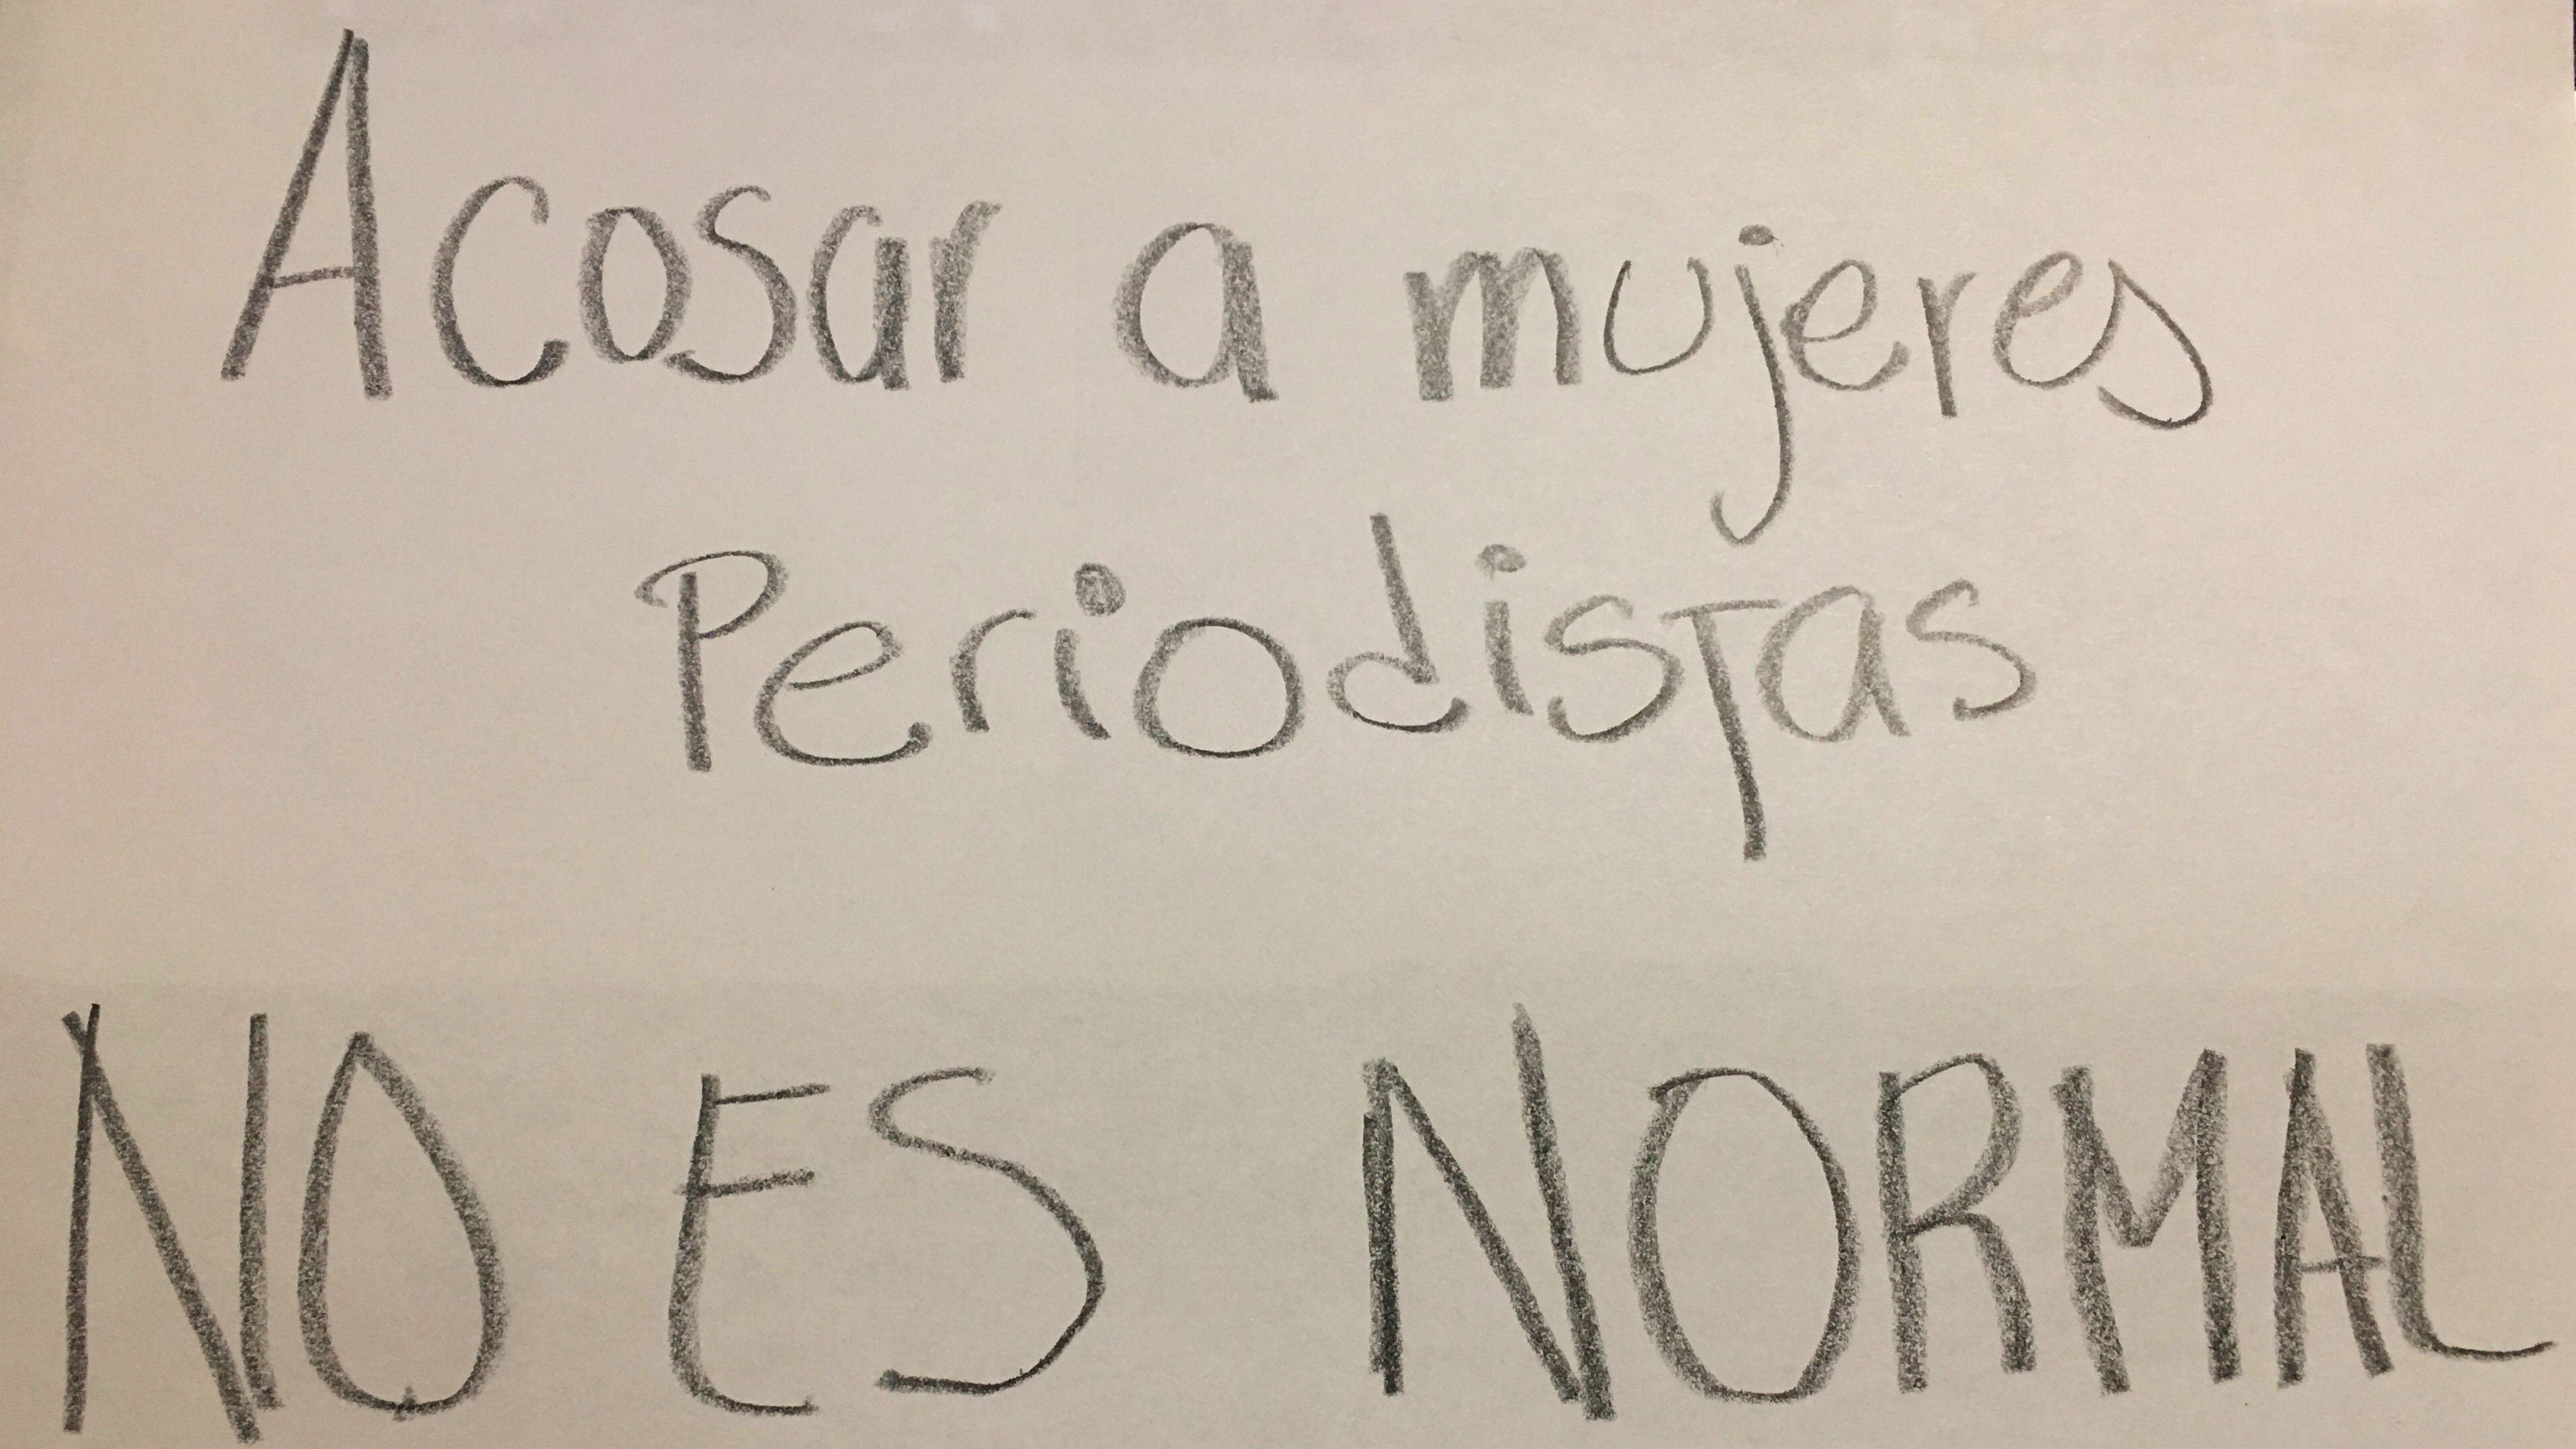 Acosar a mujeres
Periodistas
NO ES NORMAL